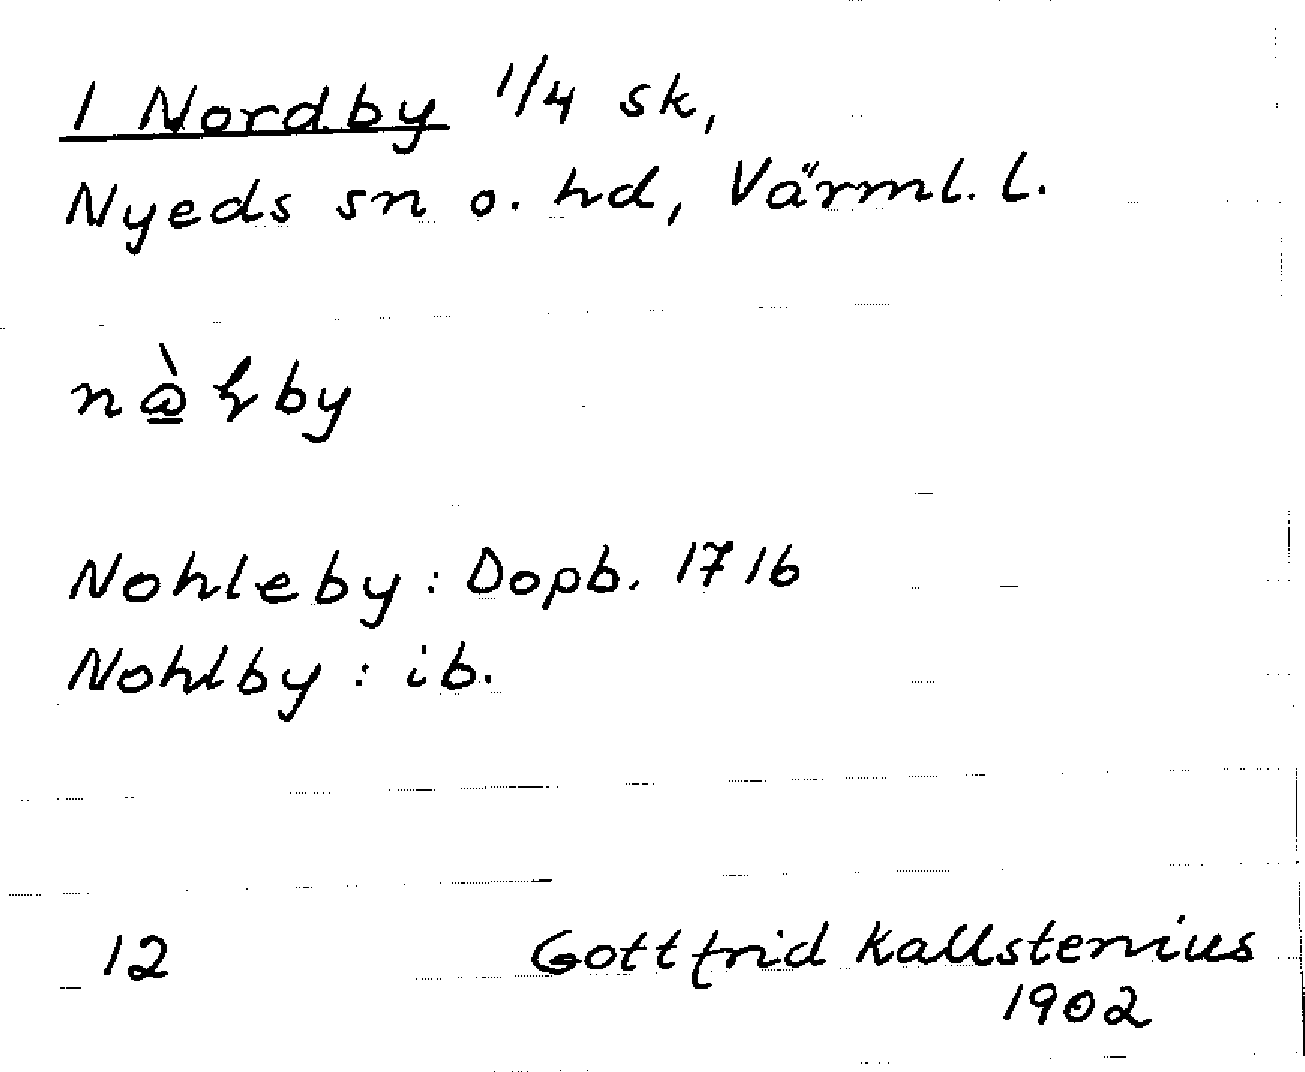 1 Nordby 1/4 sk,
Nyeds sn o. hd, Värml. l.
Nohleby: Dopb. 1716
Nohlby: ib.
12 Gottfrid Kallstenius
1902